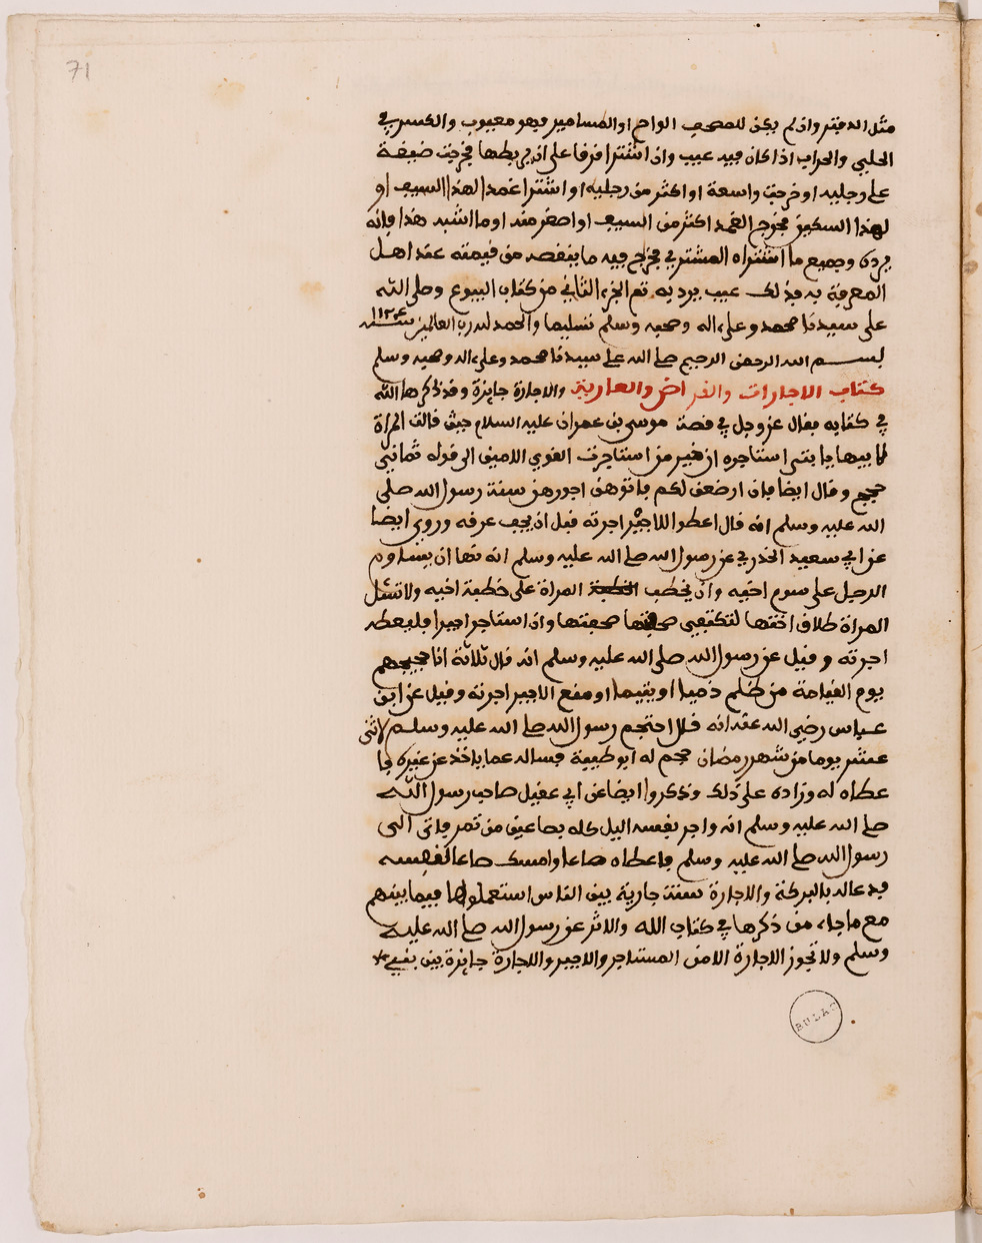 71
مثل الدفتر وان لم يكن للمصحف الواح او المسامير فهو معيوب والكسر في
الحلي والحراب اذا كان فيه عيب وان اشترا قرقا على ان يربطها فخرجت ضيقة
على رجليه او خرجت واسعة او اكثر من رجليه او اشترا غمدا لهذا السيف او
لهذا السكين فخرج الغمد اكثر من السيف او اصغر منه او ما اشبه هذا فانه
يرده وجميع ما اشتراه المشتري فخرج فيه ما ينقصه من قيمته عند اهل
المعرفة به فذلك عيب يرد به تم الجزء الثاني من كتاب البيوع وصلى الله
على سيدنا محمد وعلى اله وصحبه وسلم تسليما والحمد لله رب العالمين سنة
بسم الله الرحمن الرحيم صلى الله على سيدنا محمد وعلى اله وصحبه وسلم
كتاب الاجارات والقراض والعارية والاجارة جايزة وقد ذكرها الله
في كتابه فقال عز وجل في قصة موسى بن عمران عليه السلام حيث قالت المراة
لابيها يا بت استاجره ان خير من استاجرت القوي الامين الى قوله ثماني
حجج وقال ايضا فان ارضعن لكم فاتوهن اجورهن سنة رسول الله صلى
الله عليه وسلم انه قال اعطوا الاجير اجرته قبل ان يجف عرقه وروي ايضا
عن ابي سعيد الخدري عن رسول الله صلى الله عليه وسلم انه نها ان يساوم
الرجل على سوم اخيه وان يخطب المراة على خطبة اخيه ولا تسئل
المراة طلاق اختها لتكتفي صحفتها وان استاجر اجيرا فليعطه
اجرته وقيل عن رسول الله صلى الله عليه وسلم انه قال ثلاثة انا حجيجهم
يوم القيامة من ظلم ذميا او يتيما او منع الاجير اجرته وقيل عن ابن
عباس رضي الله عنه انه قال احتجم رسول الله صلى الله عليه وسلم لاثنى
عشر يوما من شهر رمضان حجم له ابو طيبة فساله عما ياخذ عن غيره فا
عطاه له وزاده على ذلك وذكروا ايضا عن ابي عقيل صاحب رسول الله
صلى الله عليه وسلم انه واجر نفسه اليل كله بصاعين من تمر فاتى الى
رسول الله صلى الله عليه وسلم فاعطاه صاعا وامسك صاعا لنفسه
فدعا له بالبركة والاجارة سنة جارية بين الناس استعملوها فيما بينهم
مع ما جاء من ذكرها في كتاب الله والاثر عن رسول الله صلى الله عليه
وسلم ولا تجوز الاجارة الا من المستاجر والاجير والاجارة جايزة بين
BULAC